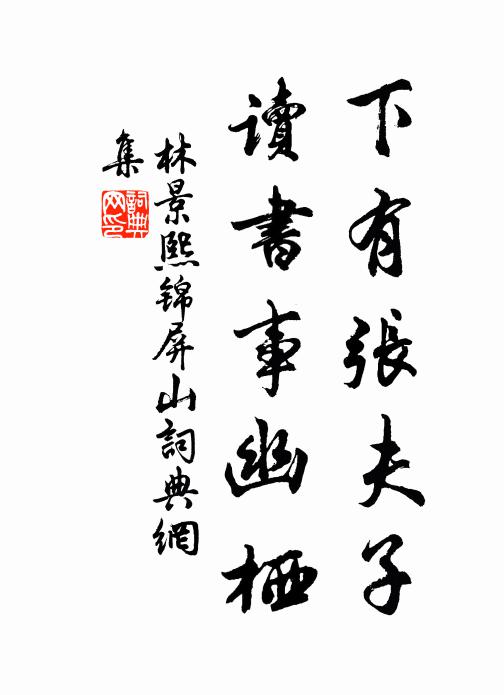 下有張夫子
讀書事幽栖
林景熙錦屏山詞典網
集
詞典网印